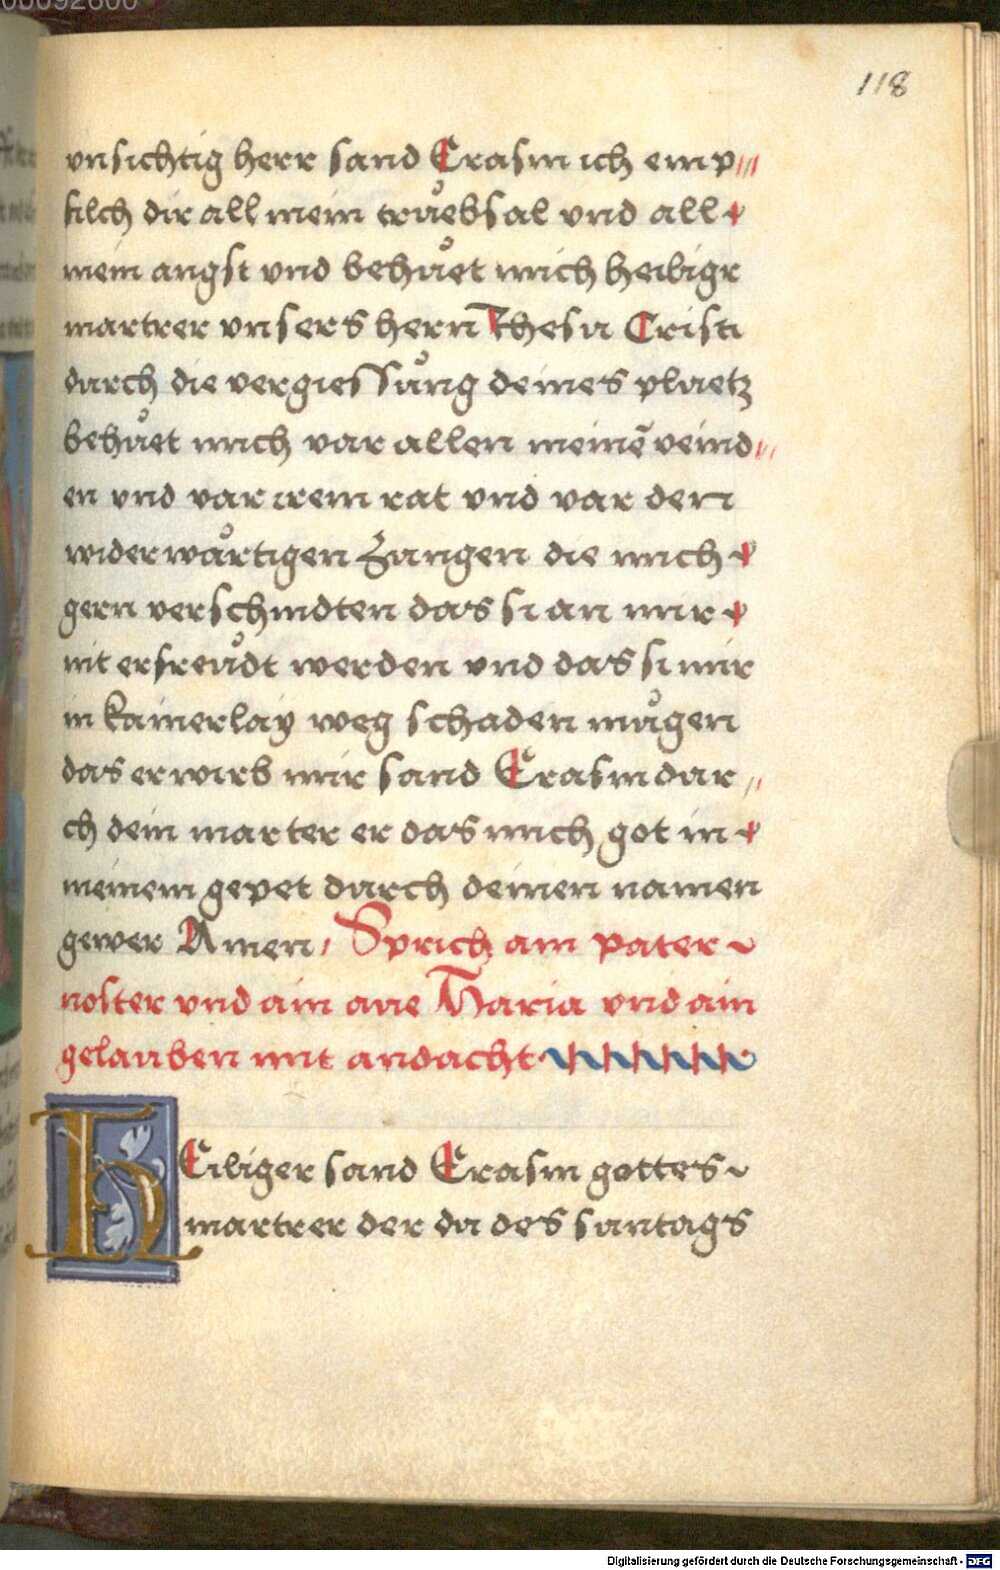 00092600
118
vnsichtig herr sand Erasm ich emp///
filch dir all mein truͤebsal vnd all
mein angst vnd behuͤet mich heiligr
martrer vnsers hern Jhesu Cristi
durch die vergiessung deines pluetz
behuͤet mich vor allen meinē veind//
en vnd vor irem rat vnd vor dern
widerwaͤrtigen Zungen die mich
gern verschmdten das si an mir
nit erfreudt werden vnd das si mir
in kainerlay weg schaden muͤgen
das erwirb mir sand Erasm dur//
ch dein marter er das mich got in
meinem gepet durch deinen namen
gewer Amen / Sprich ain pater
noster vnd ain aue Maria vnd ain
gelauben mit andacht
HEiliger sand Erasm gottes
martrer der du des suntags
Digitalisierung gefördert durch die Deutsche Forschungsgemeinschaft - DFG